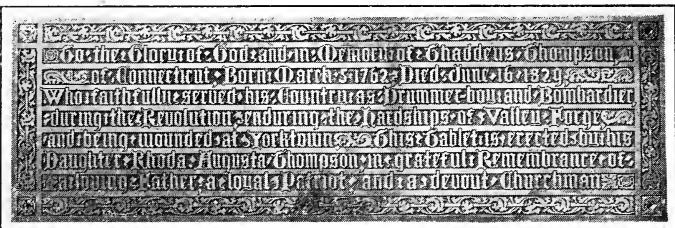 To the Glory of God and in Memory of Thaddeus Thompson
of Connecticut Born March 5 1762 Died June 16 1829
Who faithfully served his Country as Drummer boy and Bombardier
during the Revolution enduring the hardships of Valley Forge
and being wounded at Yorktown This Tablet is erected by his
Daughter Rhoda Augusta Thompson in grateful Remembrance of
a loving Father a loyal Patriot and a devout Churchman